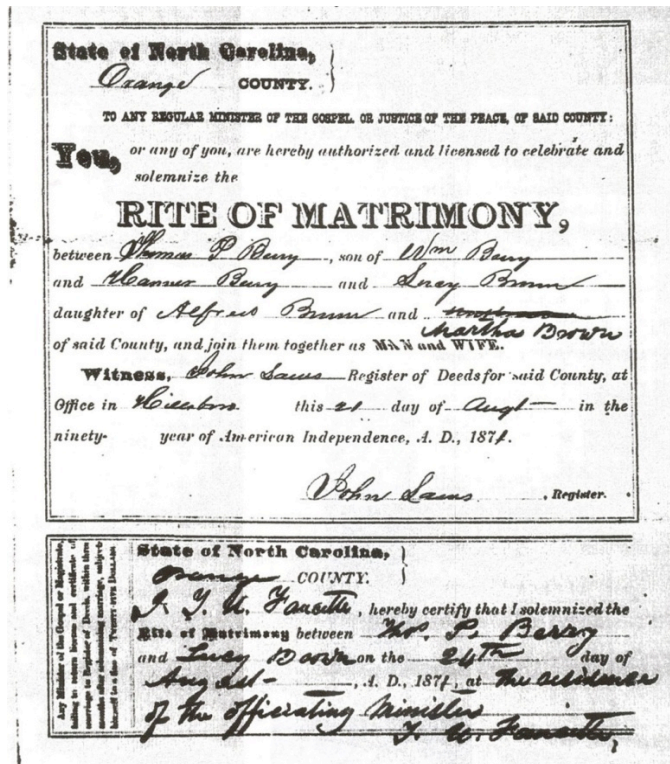 State of North Carolina,
Orange COUNTY.
TO ANY REGULAR MINISTER OF THE GOSPEL OR JUSTICE OF THE PEACE, OF SAID COUNTY:
You, or any of you, are hereby authorized and licensed to celebrate and
solemnize the
RITE OF MATRIMONY,
between Thomas P Berry, son of Wm Berry
and Berry and Brown
daughter of Alfred Brown and
Martha Brown
of said County, and join them together as MAN and WIFE.
Witness, John Laws Register of Deeds for said County, at
Office in Hillsboro this 21 day of Augt in the
ninety- year of American Independence, A. D., 1871.
John Laws, Register.
Any Minister of the Gospel or Magistrate,
failing to return license and certificate of
marriage to Register of Deeds, within three
months after solemnizing marriage, subject-
State of North Carolina,
Orange COUNTY.
I, T. U. Faucette, hereby certify that I solemnized the
Rite of Matrimony between Thos. P. Berry
and Lucy Brown on the 24th day of
August, A. D., 1871, at the residence
of the officiating Minister
T. U. Faucette,